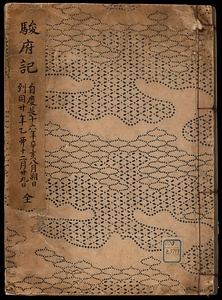 駿府記
自慶長十六年辛亥八月朔日
到同廿年乙卯十二月廿九日 全